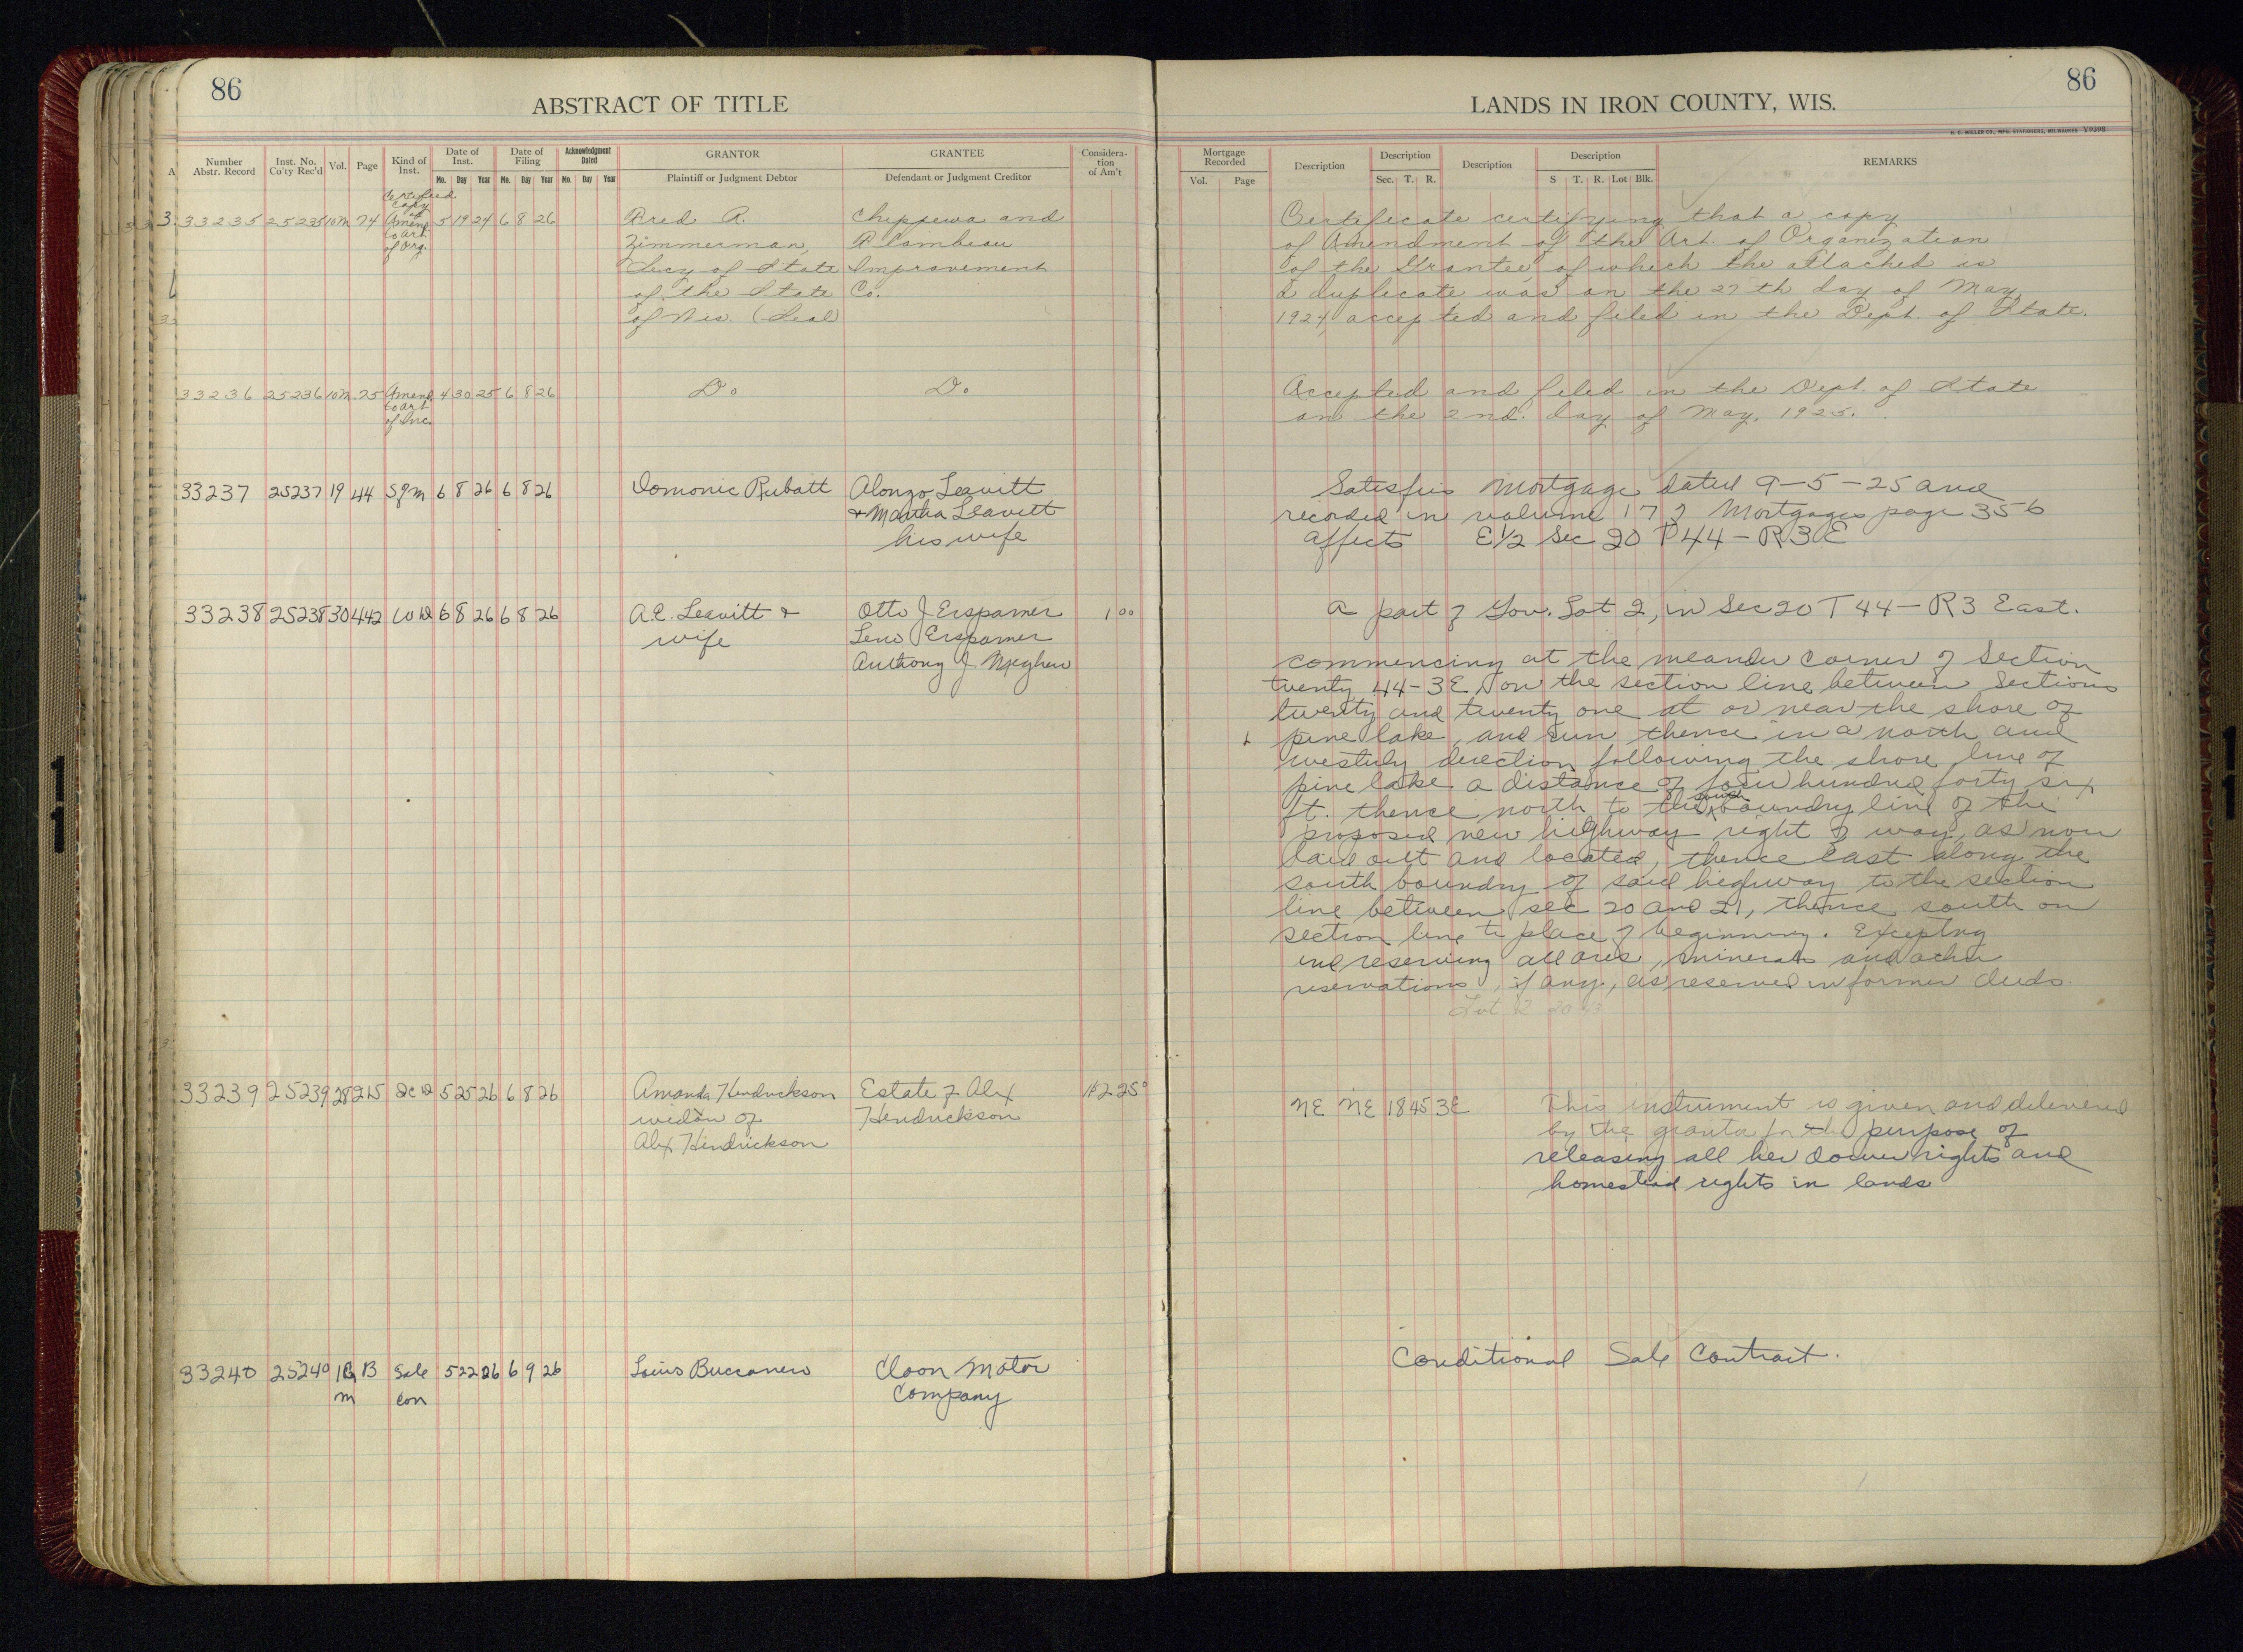 86
ABSTRACT OF TITLE
Number Abstr. Record
Inst. No. Co'ty Rec'd
Vol.
Page
Kind of Inst.
Date of Inst.
Mo. Day Year
Date of Filing
Mo. Day Year
Acknowledgment Dated
Mo. Day Year
GRANTOR
Plaintiff or Judgment Debtor
GRANTEE
Defendant or Judgment Creditor
Considera-
tion
of Am't
33235 25235 10M 74 Certified copy of Amend. to Art. of Org. 5 19 24 6 8 26
Fred A.
Zimmerman,
Secy of State
of the State
of Wis. (Seal
Chippewa and
Flambeau
Improvement
Co.
33236 25236 10M 75 Amend. to Art. of Inc. 4 30 25 6 8 26 Do Do
33237 25237 19 44 Sgm 6 8 26 6 8 26 Domonic Rubatt
Alonzo Leavitt
+ Martha Leavitt
his wife
33238 25238 30 442 WD 6 8 26 6 8 26
A.E. Leavitt +
wife
Otto J Erspamer
Leno Erspamer
Anthony J
1 00
33239 25239 28 215 QCD 5 25 26 6 8 26
Amanda Hendrickson
widow of
Alex Hendrickson
Estate of Alex
Hendrickson
33240 25240 B Sale Con 5 22 26 6 9 26
Louis
Cloon Motor
Company
86
LANDS IN IRON COUNTY, WIS.
H. C. MILLER CO., MFG. STATIONERS, MILWAUKEE V9398
Mortgage Recorded
Vol. Page
Description
Description
Sec. T. R.
Description
Description
S T. R. Lot Blk.
REMARKS
Certificate certifying that a copy
of Amendment of the Art. of Organization
of the Grantee, of which the attached is
a duplicate was on the 27th day of May,
1924, accepted and filed in the Dept. of State.
Accepted and filed in the Dept. of State
on the 2nd. day of May, 1925.
Satisfies Mortgage dated 9-5-25 and
recorded in volume 17 of Mortgages page 356
affects E1/2 Sec 20 T44-R3E
A part of Gov. Lot 2, in Sec 20 T 44-R3 East.
commencing at the meander corner of Section
twenty, 44-3E, on the section line between Sections
twenty and twenty one at or near the shore of
pine lake, and run thence in a north and
westerly direction following the shore line of
pine lake a distance of four hundred forty six
ft. thence north to the south boundry line of the
proposed new highway right of way, as now
laid out and located, thence east along the
south boundry of said highway to the section
line between sec 20 and 21, thence south on
section line to place of beginning. Excepting
and reserving all ores, minerals and other
reservations, if any, as reserved in former deeds.
NE NE 18 45 3E
This instrument is given and delivered
by the grantor for the purpose of
releasing all her dower rights and
homestead rights in lands
Conditional Sale Contract.